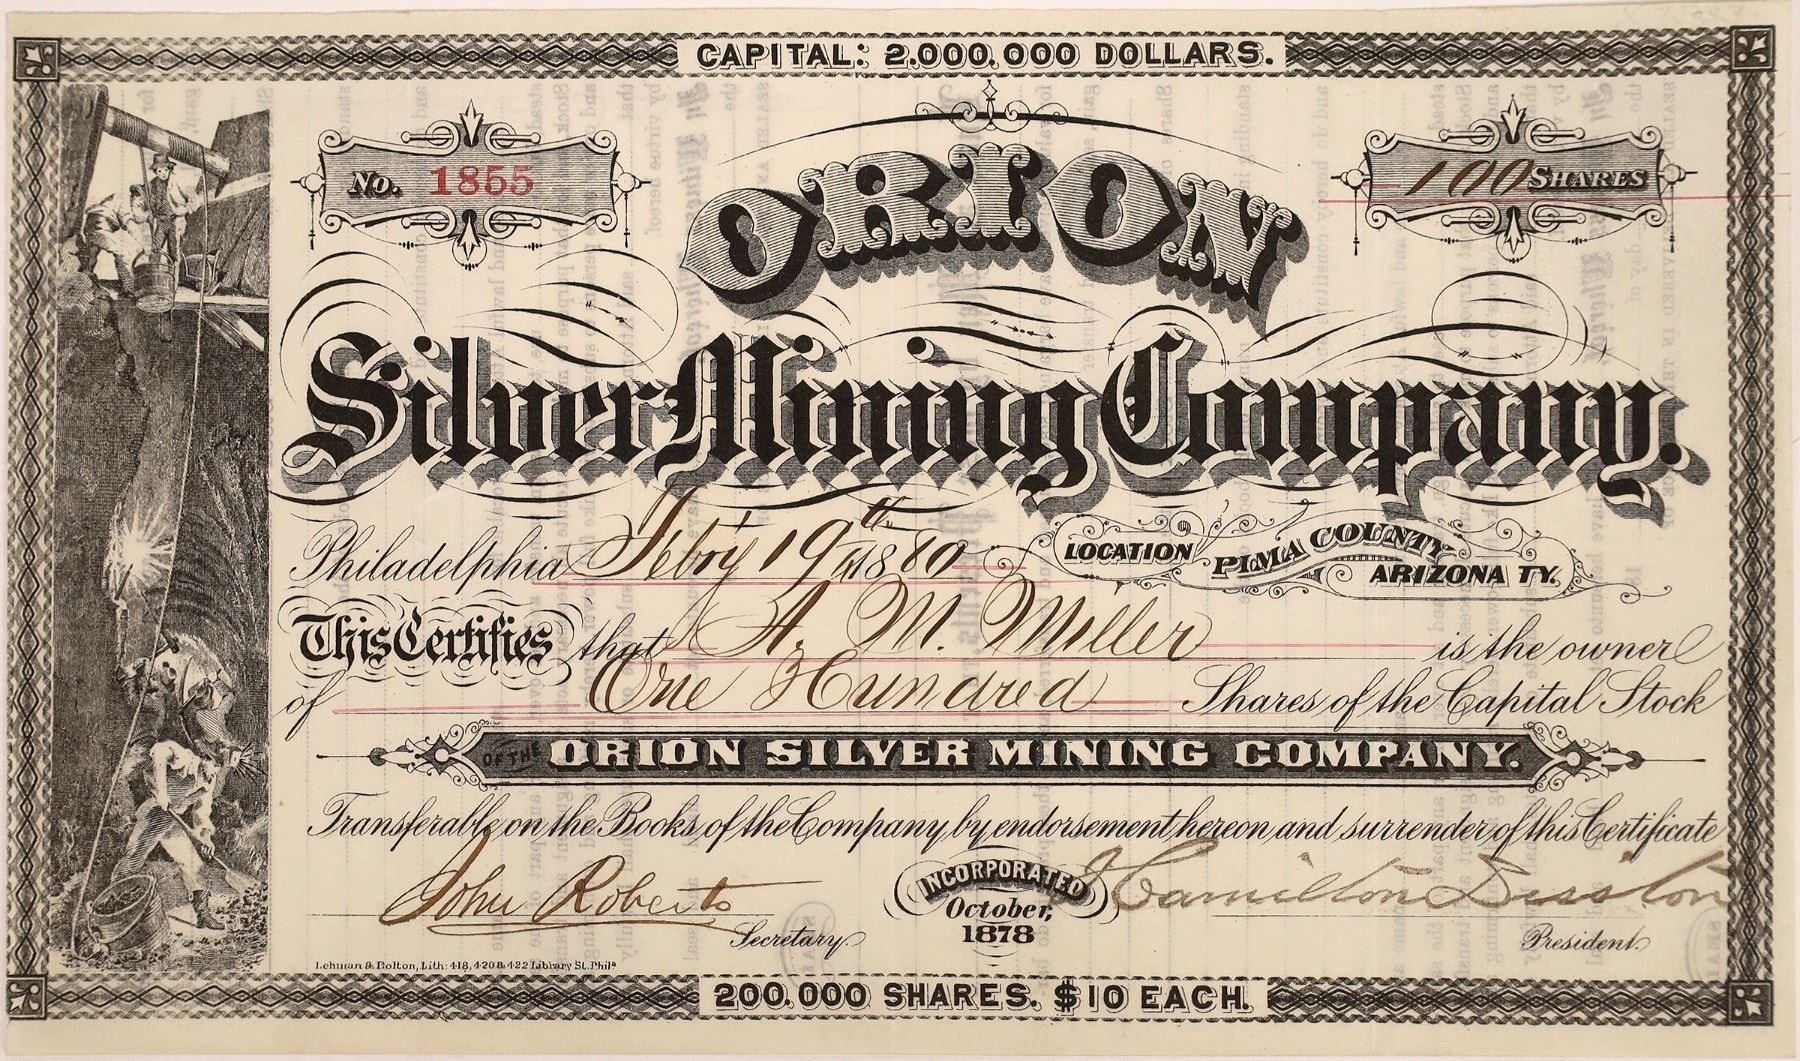 CAPITAL: 2.000.000 DOLLARS.
No. 1855
100 SHARES
ORION
Silver Mining Company.
Philadelphia Feby 19th 1880
LOCATION PIMA COUNTY ARIZONA TY.
This Certifies that A. M. Miller is the owner
of One Hundred Shares of the Capital Stock
OF THE ORION SILVER MINING COMPANY.
Transferable on the Books of the Company by endorsement hereon and surrender of this Certificate
John Roberts
Secretary.
INCORPORATED
October,
1878
Hamilton Disston
President.
Lehman & Bolton, Lith: 418, 420 & 422 Library St. Phila
200.000 SHARES. $10 EACH.